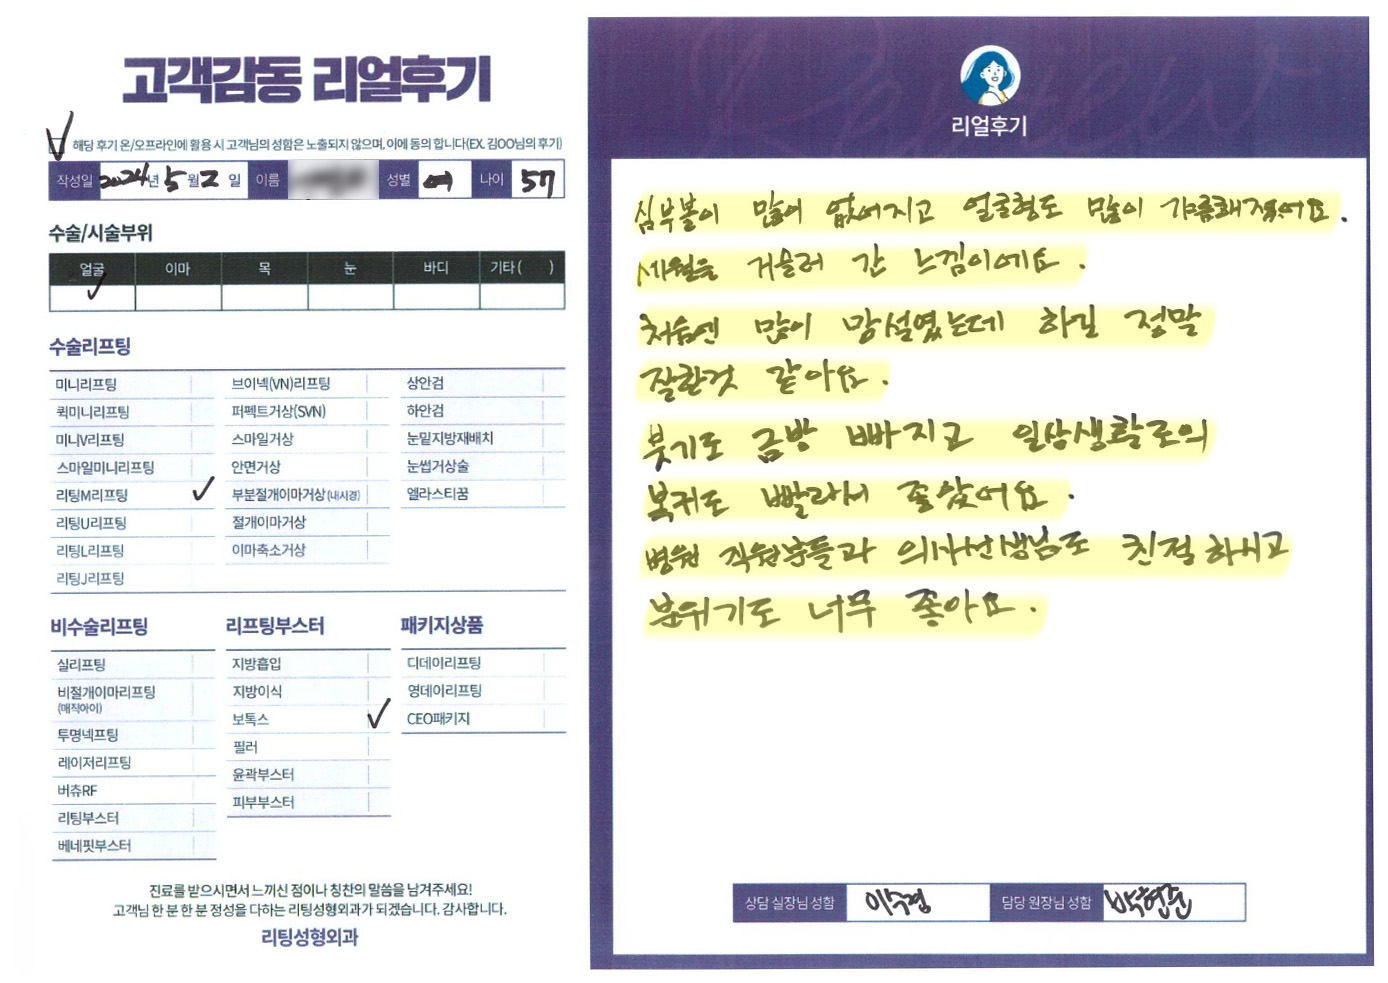 고객감동 리얼후기
해당 후기 온/오프라인에 활용 시 고객님의 성함은 노출되지 않으며, 이에 동의 합니다(EX. 김OO님의 후기)
작성일 2024년 5월 2일 이름 성별 여 나이 57
수술/시술부위
얼굴 이마 목 눈 바디 기타 ( )
수술리프팅
미니리프팅
퀵미니리프팅
미니V리프팅
스마일미니리프팅
리팅M리프팅
리팅U리프팅
리팅L리프팅
리팅J리프팅
브이넥(VN)리프팅
퍼펙트거상(SVN)
스마일거상
안면거상
부분절개이마거상(내시경)
절개이마거상
이마축소거상
상안검
하안검
눈밑지방재배치
눈썹거상술
엘라스티꿈
비수술리프팅
실리프팅
비절개이마리프팅
(매직아이)
투명넥프팅
레이저리프팅
버츄RF
리팅부스터
베네핏부스터
리프팅부스터
지방흡입
지방이식
보톡스
필러
윤곽부스터
피부부스터
패키지상품
디데이리프팅
영데이리프팅
CEO패키지
진료를 받으시면서 느끼신 점이나 칭찬의 말씀을 남겨주세요!
고객님 한 분 한 분 정성을 다하는 리팅성형외과가 되겠습니다. 감사합니다.
리팅성형외과
리얼후기
심부볼이 많이 없어지고 얼굴형도 많이 갸름해졌어요.
세월을 거슬러 간 느낌이에요.
처음엔 많이 망설였는데 하길 정말
잘한것 같아요.
붓기도 금방 빠지고 일상생활로의
복귀도 빨라서 좋았어요.
병원 직원분들과 의사선생님도 친절하시고
분위기도 너무 좋아요.
상담 실장님 성함 이수경 담당 원장님 성함 박현준